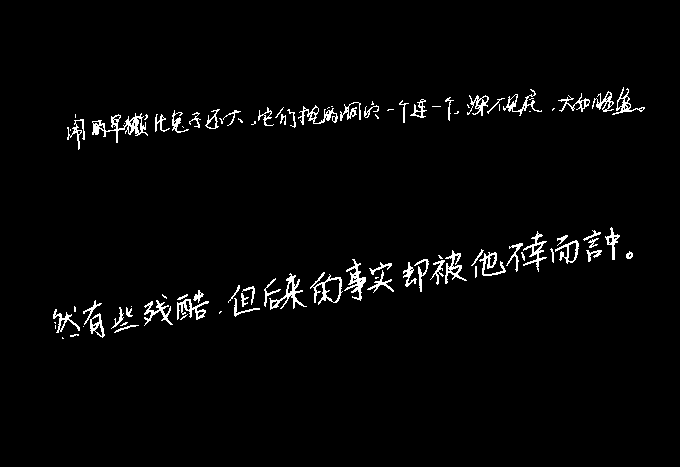 闹的旱獭比兔子还大，它们挖的洞穴一个连一个，深不见底，大如脸盆。
然有些残酷，但后来的事实却被他不幸而言中。